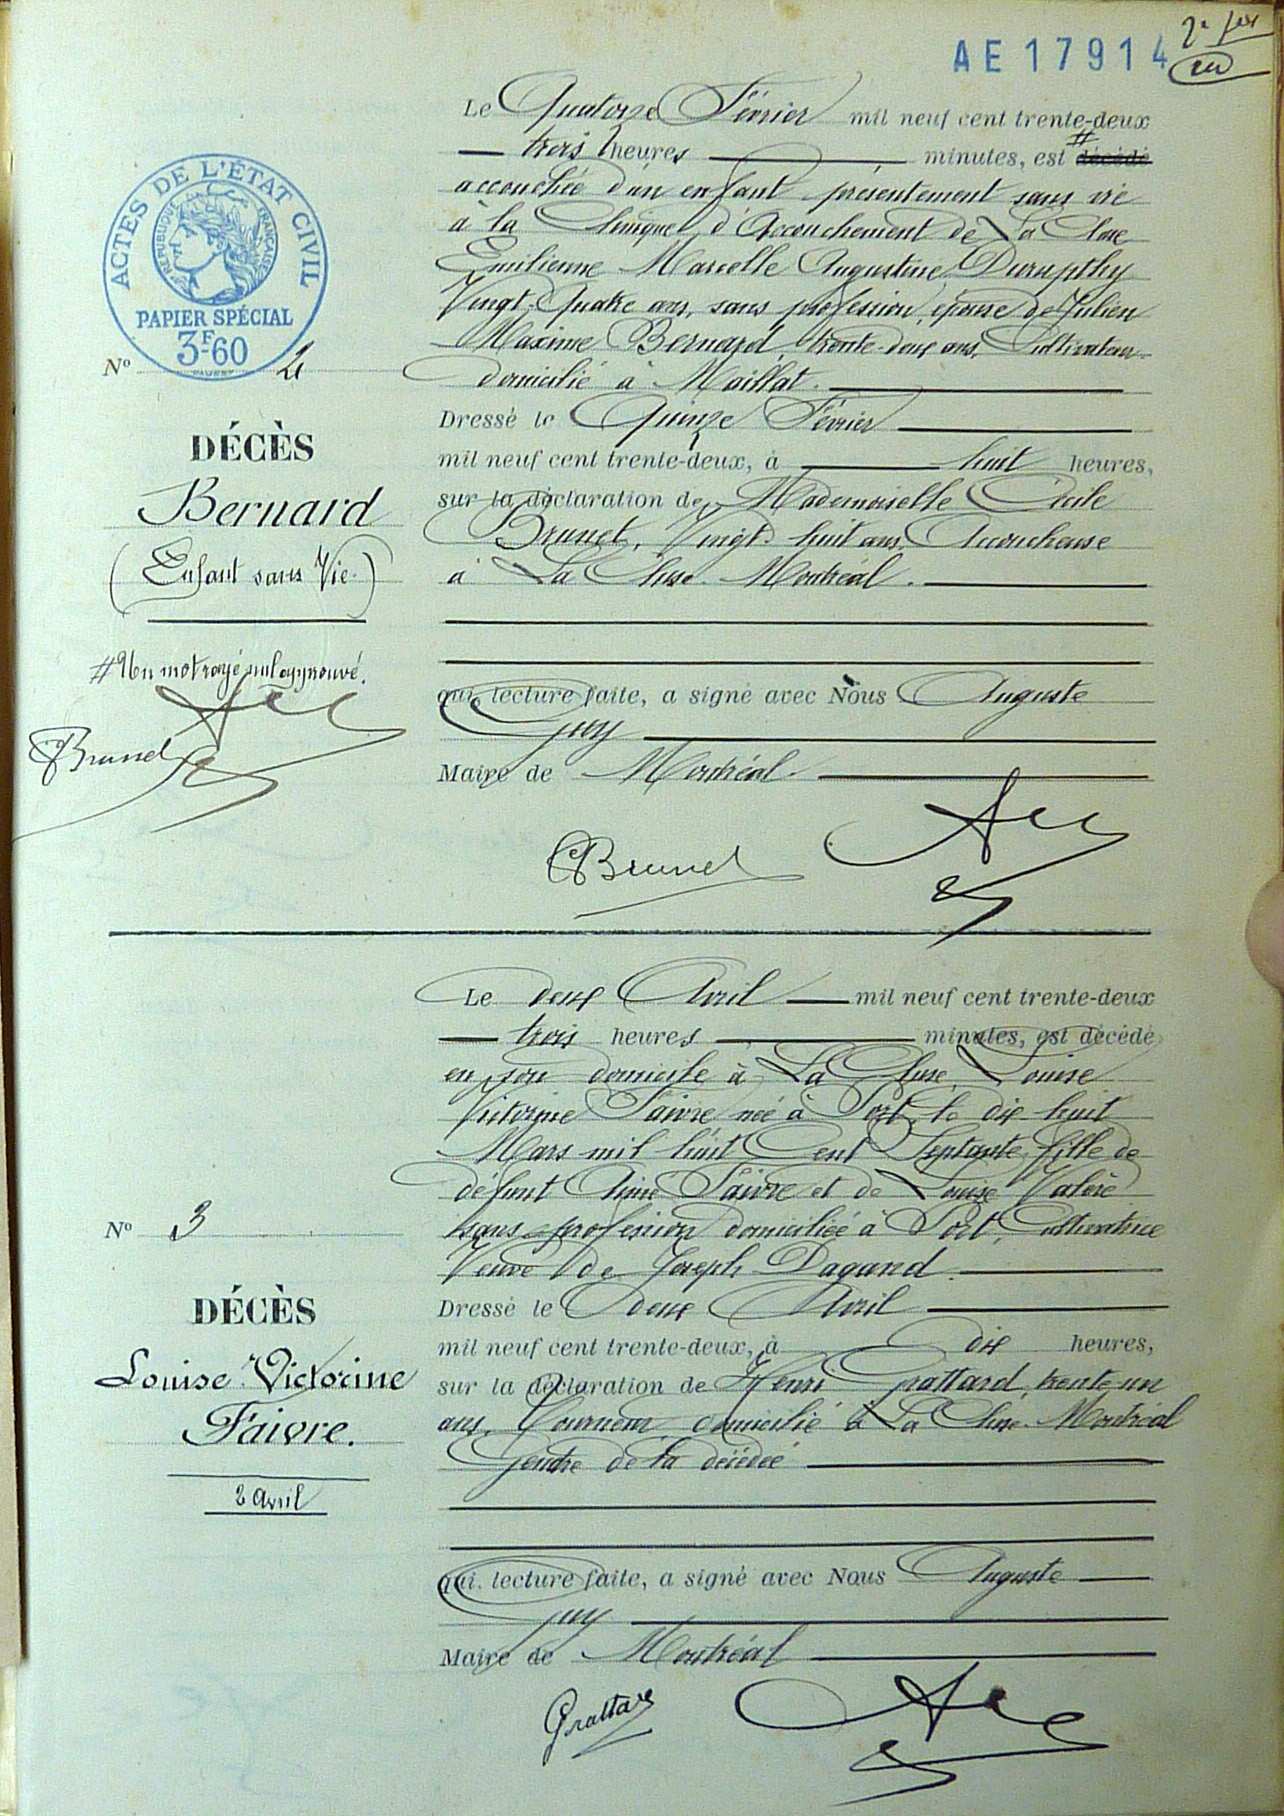 AE 17914
ACTES DE L'ÉTAT CIVIL
RÉPUBLIQUE FRANÇAISE
PAPIER SPÉCIAL
3F-60
Le Quatorze Février mil neuf cent trente-deux
trois heures minutes, est décédé #
accouchée d'un enfant présentement sans vie
à la Clinique d'Accouchement de La Cluse
Emilienne Marcelle Augustine Durupthy
Vingt-Quatre ans, sans profession, épouse de Julien
Maxime Bernard, trente-deux ans, Cultivateur
domicilié à Maillat.
Dressé le Quinze Février
mil neuf cent trente-deux, à huit heures,
sur la déclaration de Mademoiselle Cécile
Brunet, Vingt-huit ans, Accoucheuse
à La Cluse-Montréal.
qui, lecture faite, a signé avec Nous Auguste
Guy
Maire de Montréal.
CBrunet
No 2
DÉCÈS
Bernard
(Enfant sans Vie.)
# Un mot rayé nul approuvé.
Brunet
Le deux Avril mil neuf cent trente-deux
trois heures minutes, est décédé
en son domicile à La Cluse, Louise
Victorine Faivre née à Port, le dix-huit
Mars mil huit Cent Septante, fille de
défunt Aimé Faivre et de Louise
sans profession domiciliée à Port, Cultivatrice
Veuve de Joseph Dagand.
Dressé le deux Avril
mil neuf cent trente-deux, à dix heures,
sur la déclaration de Henri Grattard, trente un
ans, Tourneur, domicilié à La Cluse-Montréal
Gendre de la décédée
qui, lecture faite, a signé avec Nous Auguste
Guy
Maire de Montréal
Grattard
No 3
DÉCÈS
Louise Victorine
Faivre.
2 Avril